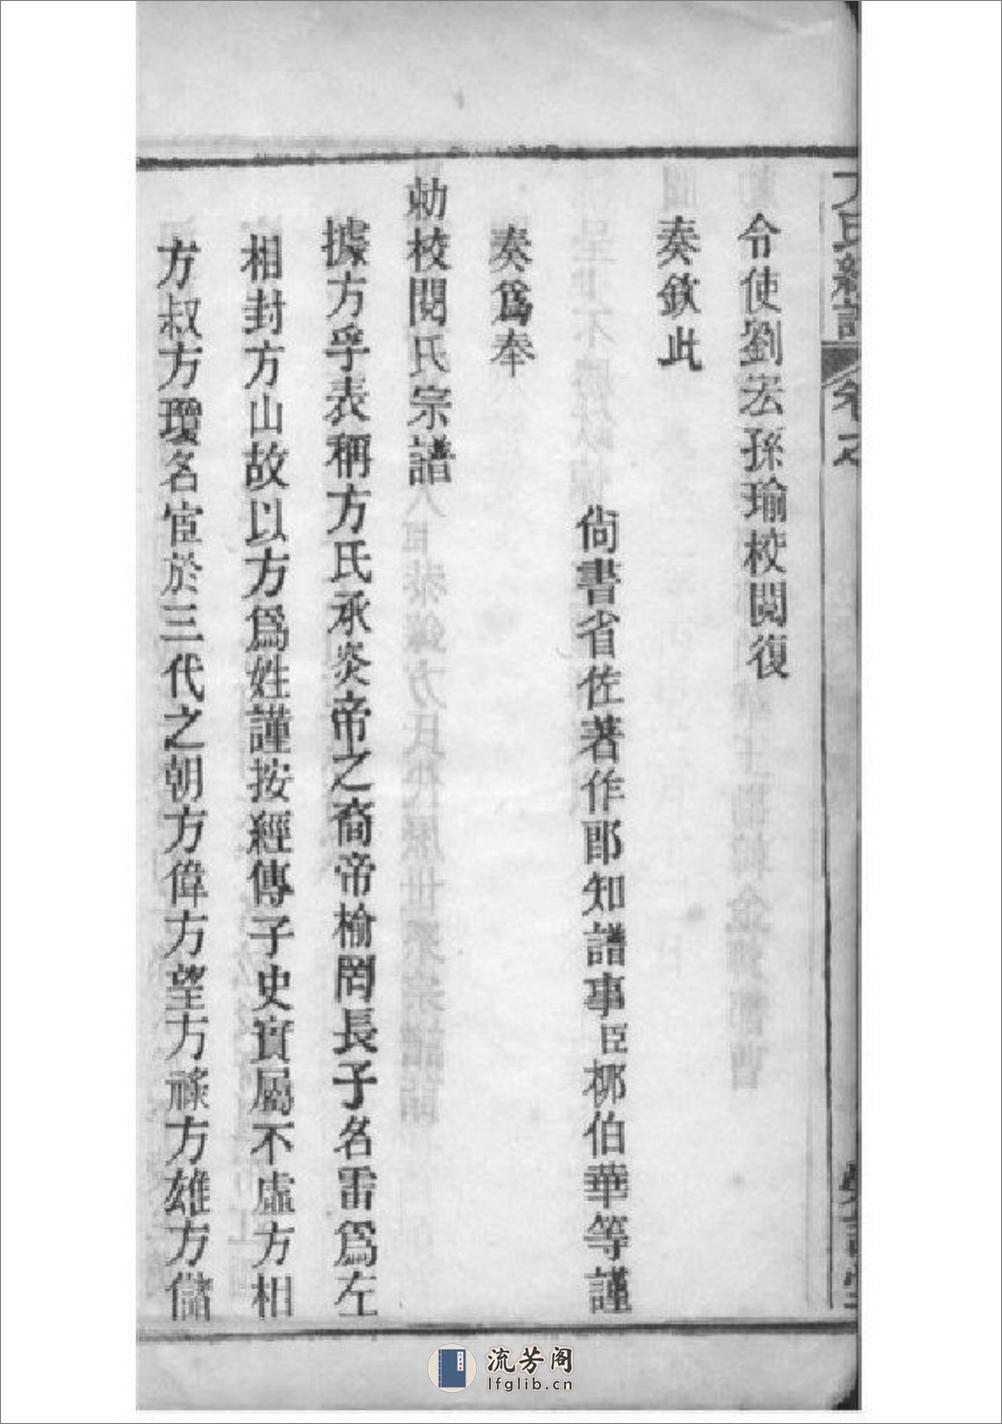 令使劉宏孫瑜校閱復
奏欽此
尚書省佐著作郎知譜事臣栁伯華等謹
奏爲奉
勅校閱氏宗譜
據方孚表稱方氏承炎帝之裔帝榆罔長子名雷爲左
相封方山故以方爲姓謹按經傳子史實屬不虛方相
方叔方瓊名宦於三代之朝方偉方望方祿方雄方儲
流芳阁
lfglib.cn